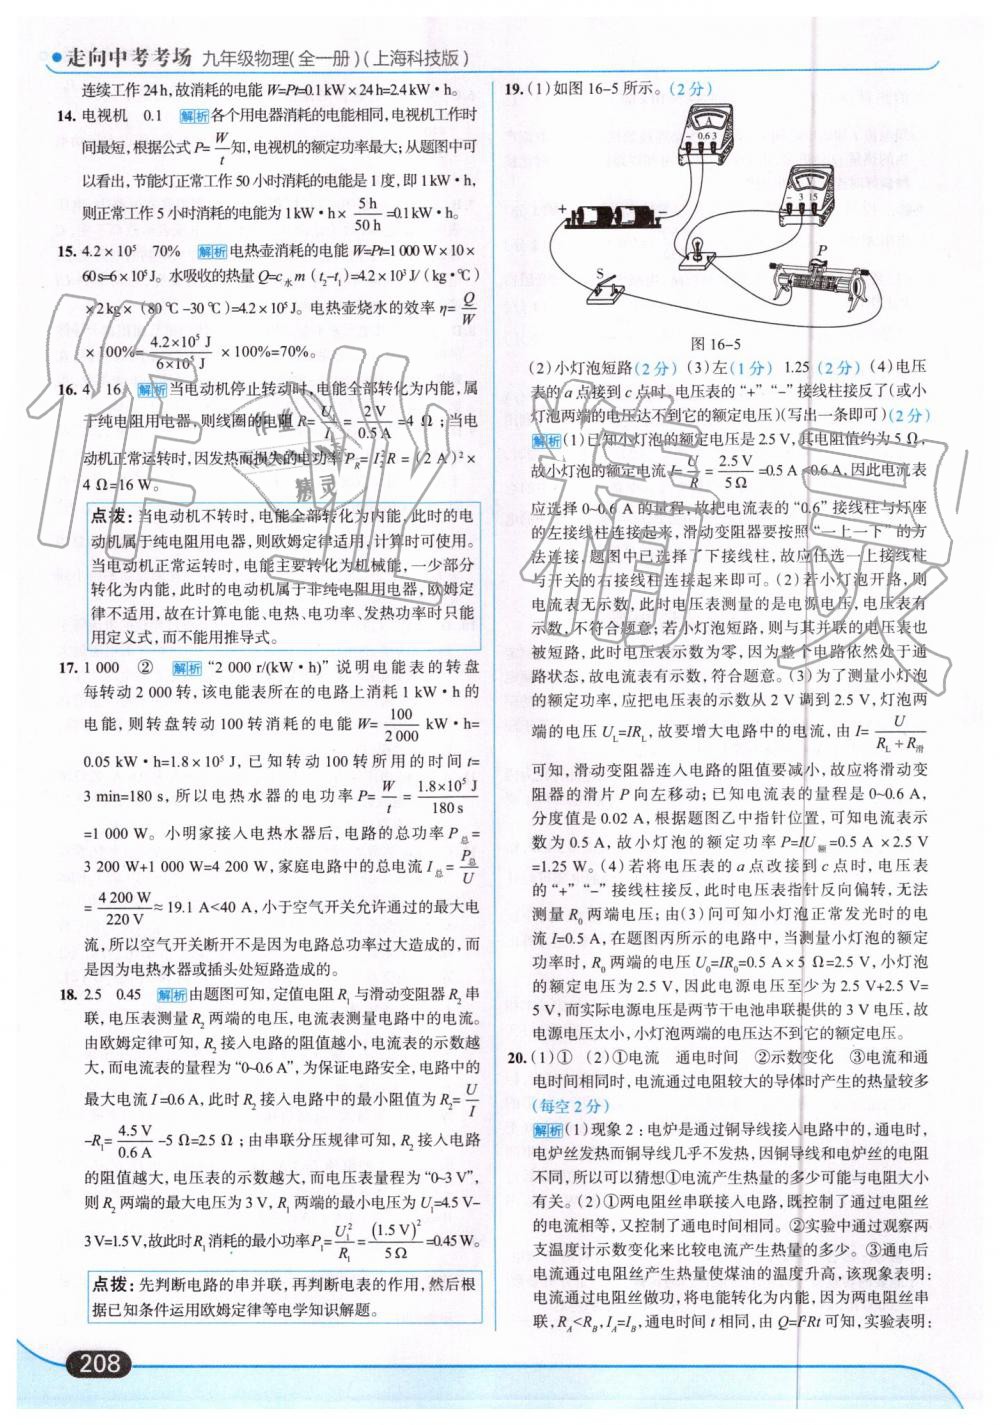 走向中考考场 九年级物理(全一册)(上海科技版)
连续工作24h,故消耗的电能W=Pt=0.1kW×24h=2.4kW·h。
14. 电视机 0.1 解析 各个用电器消耗的电能相同,电视机工作时
间最短,根据公式P=W/t知,电视机的额定功率最大;从题图中可
以看出,节能灯正常工作50小时消耗的电能是1度,即1kW·h,
则正常工作5小时消耗的电能为1kW·h×5h/50h=0.1kW·h。
15. 4.2×10⁵ 70% 解析 电热壶消耗的电能W=Pt=1000W×10×
60s=6×10⁵J。水吸收的热量Q=c水m(t₂-t₁)=4.2×10³J/(kg·℃)
×2kg×(80℃-30℃)=4.2×10⁵J。电热壶烧水的效率η=Q/W
×100%=4.2×10⁵J/6×10⁵J×100%=70%。
16. 4 16 解析 当电动机停止转动时,电能全部转化为内能,属
于纯电阻用电器,则线圈的电阻R=U₁/I₁=2V/0.5A=4Ω;当电
动机正常运转时,因发热而损失的电功率P_R=I₂²R=(2A)²×
4Ω=16W。
点拨:当电动机不转时,电能全部转化为内能,此时的电
动机属于纯电阻用电器,则欧姆定律适用,计算时可使用。
当电动机正常运转时,电能主要转化为机械能,一少部分
转化为内能,此时的电动机属于非纯电阻用电器,欧姆定
律不适用,故在计算电能、电热、电功率、发热功率时只能
用定义式,而不能用推导式。
17. 1000 ② 解析 “2000r/(kW·h)”说明电能表的转盘
每转动2000转,该电能表所在的电路上消耗1kW·h的
电能,则转盘转动100转消耗的电能W=100/2000 kW·h=
0.05kW·h=1.8×10⁵J,已知转动100转所用的时间t=
3min=180s,所以电热水器的电功率P=W/t=1.8×10⁵J/180s
=1000W。小明家接入电热水器后,电路的总功率P总=
3200W+1000W=4200W,家庭电路中的总电流I总=P总/U
=4200W/220V≈19.1A<40A,小于空气开关允许通过的最大电
流,所以空气开关断开不是因为电路总功率过大造成的,而
是因为电热水器或插头处短路造成的。
18. 2.5 0.45 解析 由题图可知,定值电阻R₁与滑动变阻器R₂串
联,电压表测量R₂两端的电压,电流表测量电路中的电流。
由欧姆定律可知,R₂接入电路的阻值越小,电流表的示数越
大,而电流表的量程为“0~0.6A”,为保证电路安全,电路中的
最大电流I=0.6A,此时R₂接入电路中的最小阻值为R₂=U/I
-R₁=4.5V/0.6A-5Ω=2.5Ω;由串联分压规律可知,R₂接入电路
的阻值越大,电压表的示数越大,而电压表量程为“0~3V”,
则R₂两端的最大电压为3V,R₁两端的最小电压为U₁=4.5V-
3V=1.5V,故此时R₁消耗的最小功率P₁=U₁²/R₁=(1.5V)²/5Ω=0.45W。
点拨:先判断电路的串并联,再判断电表的作用,然后根
据已知条件运用欧姆定律等电学知识解题。
208
19. (1)如图16-5所示。(2分)
A
- 0.6 3
V
- 3 15
+
-
S
P
图16-5
(2)小灯泡短路(2分) (3)左(1分) 1.25(2分) (4)电压
表的a点接到c点时,电压表的“+”“-”接线柱接反了(或小
灯泡两端的电压达不到它的额定电压)(写出一条即可)(2分)
解析 (1)已知小灯泡的额定电压是2.5V,其电阻值约为5Ω,
故小灯泡的额定电流I=U/R=2.5V/5Ω=0.5A<0.6A,因此电流表
应选择0~0.6A的量程,故把电流表的“0.6”接线柱与灯座
的左接线柱连接起来,滑动变阻器要按照“一上一下”的方
法连接,题图中已选择了下接线柱,故应任选一上接线柱
与开关的右接线柱连接起来即可。(2)若小灯泡开路,则
电流表无示数,此时电压表测量的是电源电压,电压表有
示数,不符合题意;若小灯泡短路,则与其并联的电压表也
被短路,此时电压表示数为零,因为整个电路依然处于通
路状态,故电流表有示数,符合题意。(3)为了测量小灯泡
的额定功率,应把电压表的示数从2V调到2.5V,灯泡两
端的电压U_L=IR_L,故要增大电路中的电流,由I=U/(R_L+R滑)
可知,滑动变阻器连入电路的阻值要减小,故应将滑动变
阻器的滑片P向左移动;已知电流表的量程是0~0.6A,
分度值是0.02A,根据题图乙中指针位置,可知电流表示
数为0.5A,故小灯泡的额定功率P=IU额=0.5A×2.5V
=1.25W。(4)若将电压表的a点改接到c点时,电压表
的“+”“-”接线柱接反,此时电压表指针反向偏转,无法
测量R₀两端电压;由(3)问可知小灯泡正常发光时的电
流I=0.5A,在题图丙所示的电路中,当测量小灯泡的额定
功率时,R₀两端的电压U₀=IR₀=0.5A×5Ω=2.5V,小灯泡
的额定电压为2.5V,因此电源电压至少为2.5V+2.5V=
5V,而实际电源电压是两节干电池串联提供的3V电压,故
电源电压太小,小灯泡两端的电压达不到它的额定电压。
20. (1)① (2)①电流 通电时间 ②示数变化 ③电流和通
电时间相同时,电流通过电阻较大的导体时产生的热量较多
(每空2分)
解析 (1)现象2:电炉是通过铜导线接入电路中的,通电时,
电炉丝发热而铜导线几乎不发热,因铜导线和电炉丝的电阻
不同,所以可以猜想①电流产生热量的多少可能与电阻大小
有关。(2)①两电阻丝串联接入电路,既控制了通过电阻丝
的电流相等,又控制了通电时间相同。②实验中通过观察两
支温度计示数变化来比较电流产生热量的多少。③通电后
电流通过电阻丝产生热量使煤油的温度升高,该现象表明:
电流通过电阻丝做功,将电能转化为内能,因为两电阻丝串
联,R_A<R_B,I_A=I_B,通电时间t相同,由Q=I²Rt可知,实验表明:
作业精灵
作业精灵